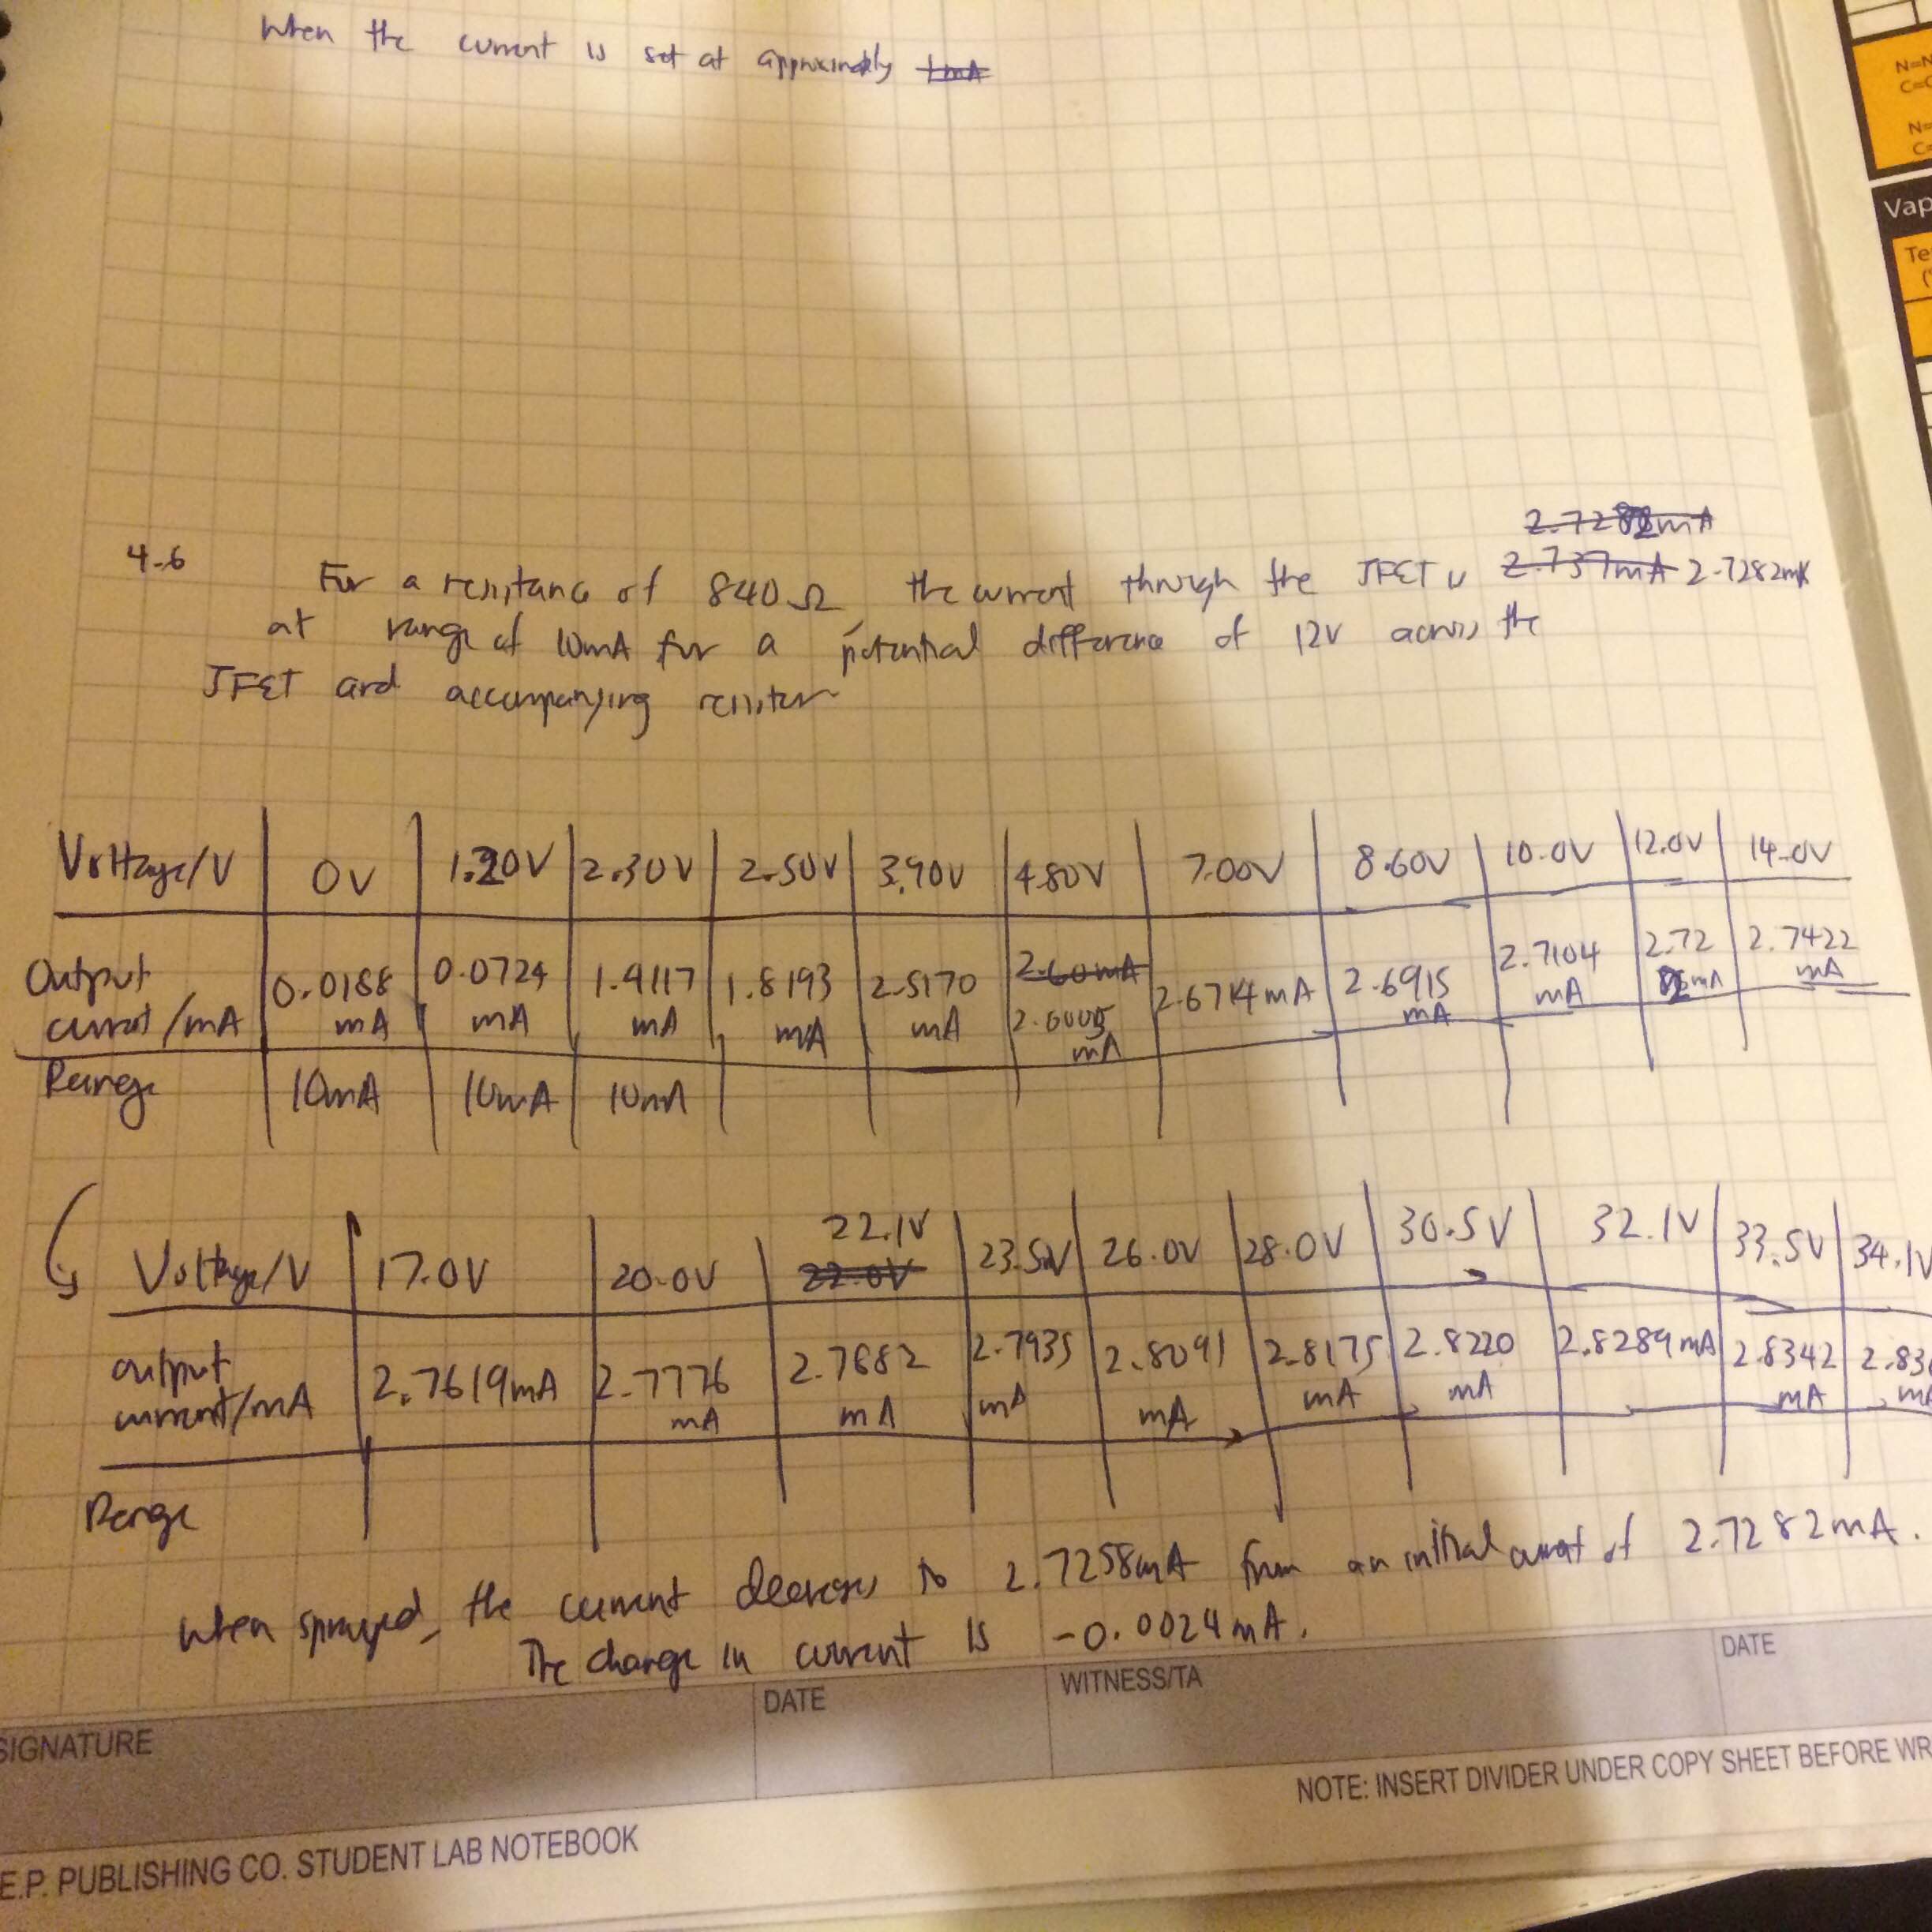 When the current is set at approximately 1mA
4.6
2.7282mA
For a resistance of 840Ω the current through the JFET is 2.737mA 2.7282mA
at range of 10mA for a potential difference of 12V across the
JFET and accompanying resistor
Voltage/V 0V 1.20V 2.30V 2.50V 3.90V 4.80V 7.00V 8.60V 10.0V 12.0V 14.0V
Output current/mA 0.0188 mA 0.0724 mA 1.4117 mA 1.8193 mA 2.5170 mA 2.60mA 2.6005 mA 2.6714mA 2.6915 mA 2.7104 mA 2.72 mA 2.7422 mA
Range 10mA 10mA 10mA
Voltage/V 17.0V 20.0V 22.0V 22.1V 23.5V 26.0V 28.0V 30.5V 32.1V 33.5V 34.1V
output current/mA 2.7619mA 2.7776 mA 2.7882 mA 2.7935 mA 2.8091 mA 2.8175 mA 2.8220 mA 2.8289mA 2.8342 mA
Range
When sprayed, the current decreases to 2.7258mA from an initial current of 2.7282mA.
The change in current is -0.0024mA.
SIGNATURE DATE WITNESS/TA DATE
E.P. PUBLISHING CO. STUDENT LAB NOTEBOOK NOTE: INSERT DIVIDER UNDER COPY SHEET BEFORE WR
Vap
Te
N=N